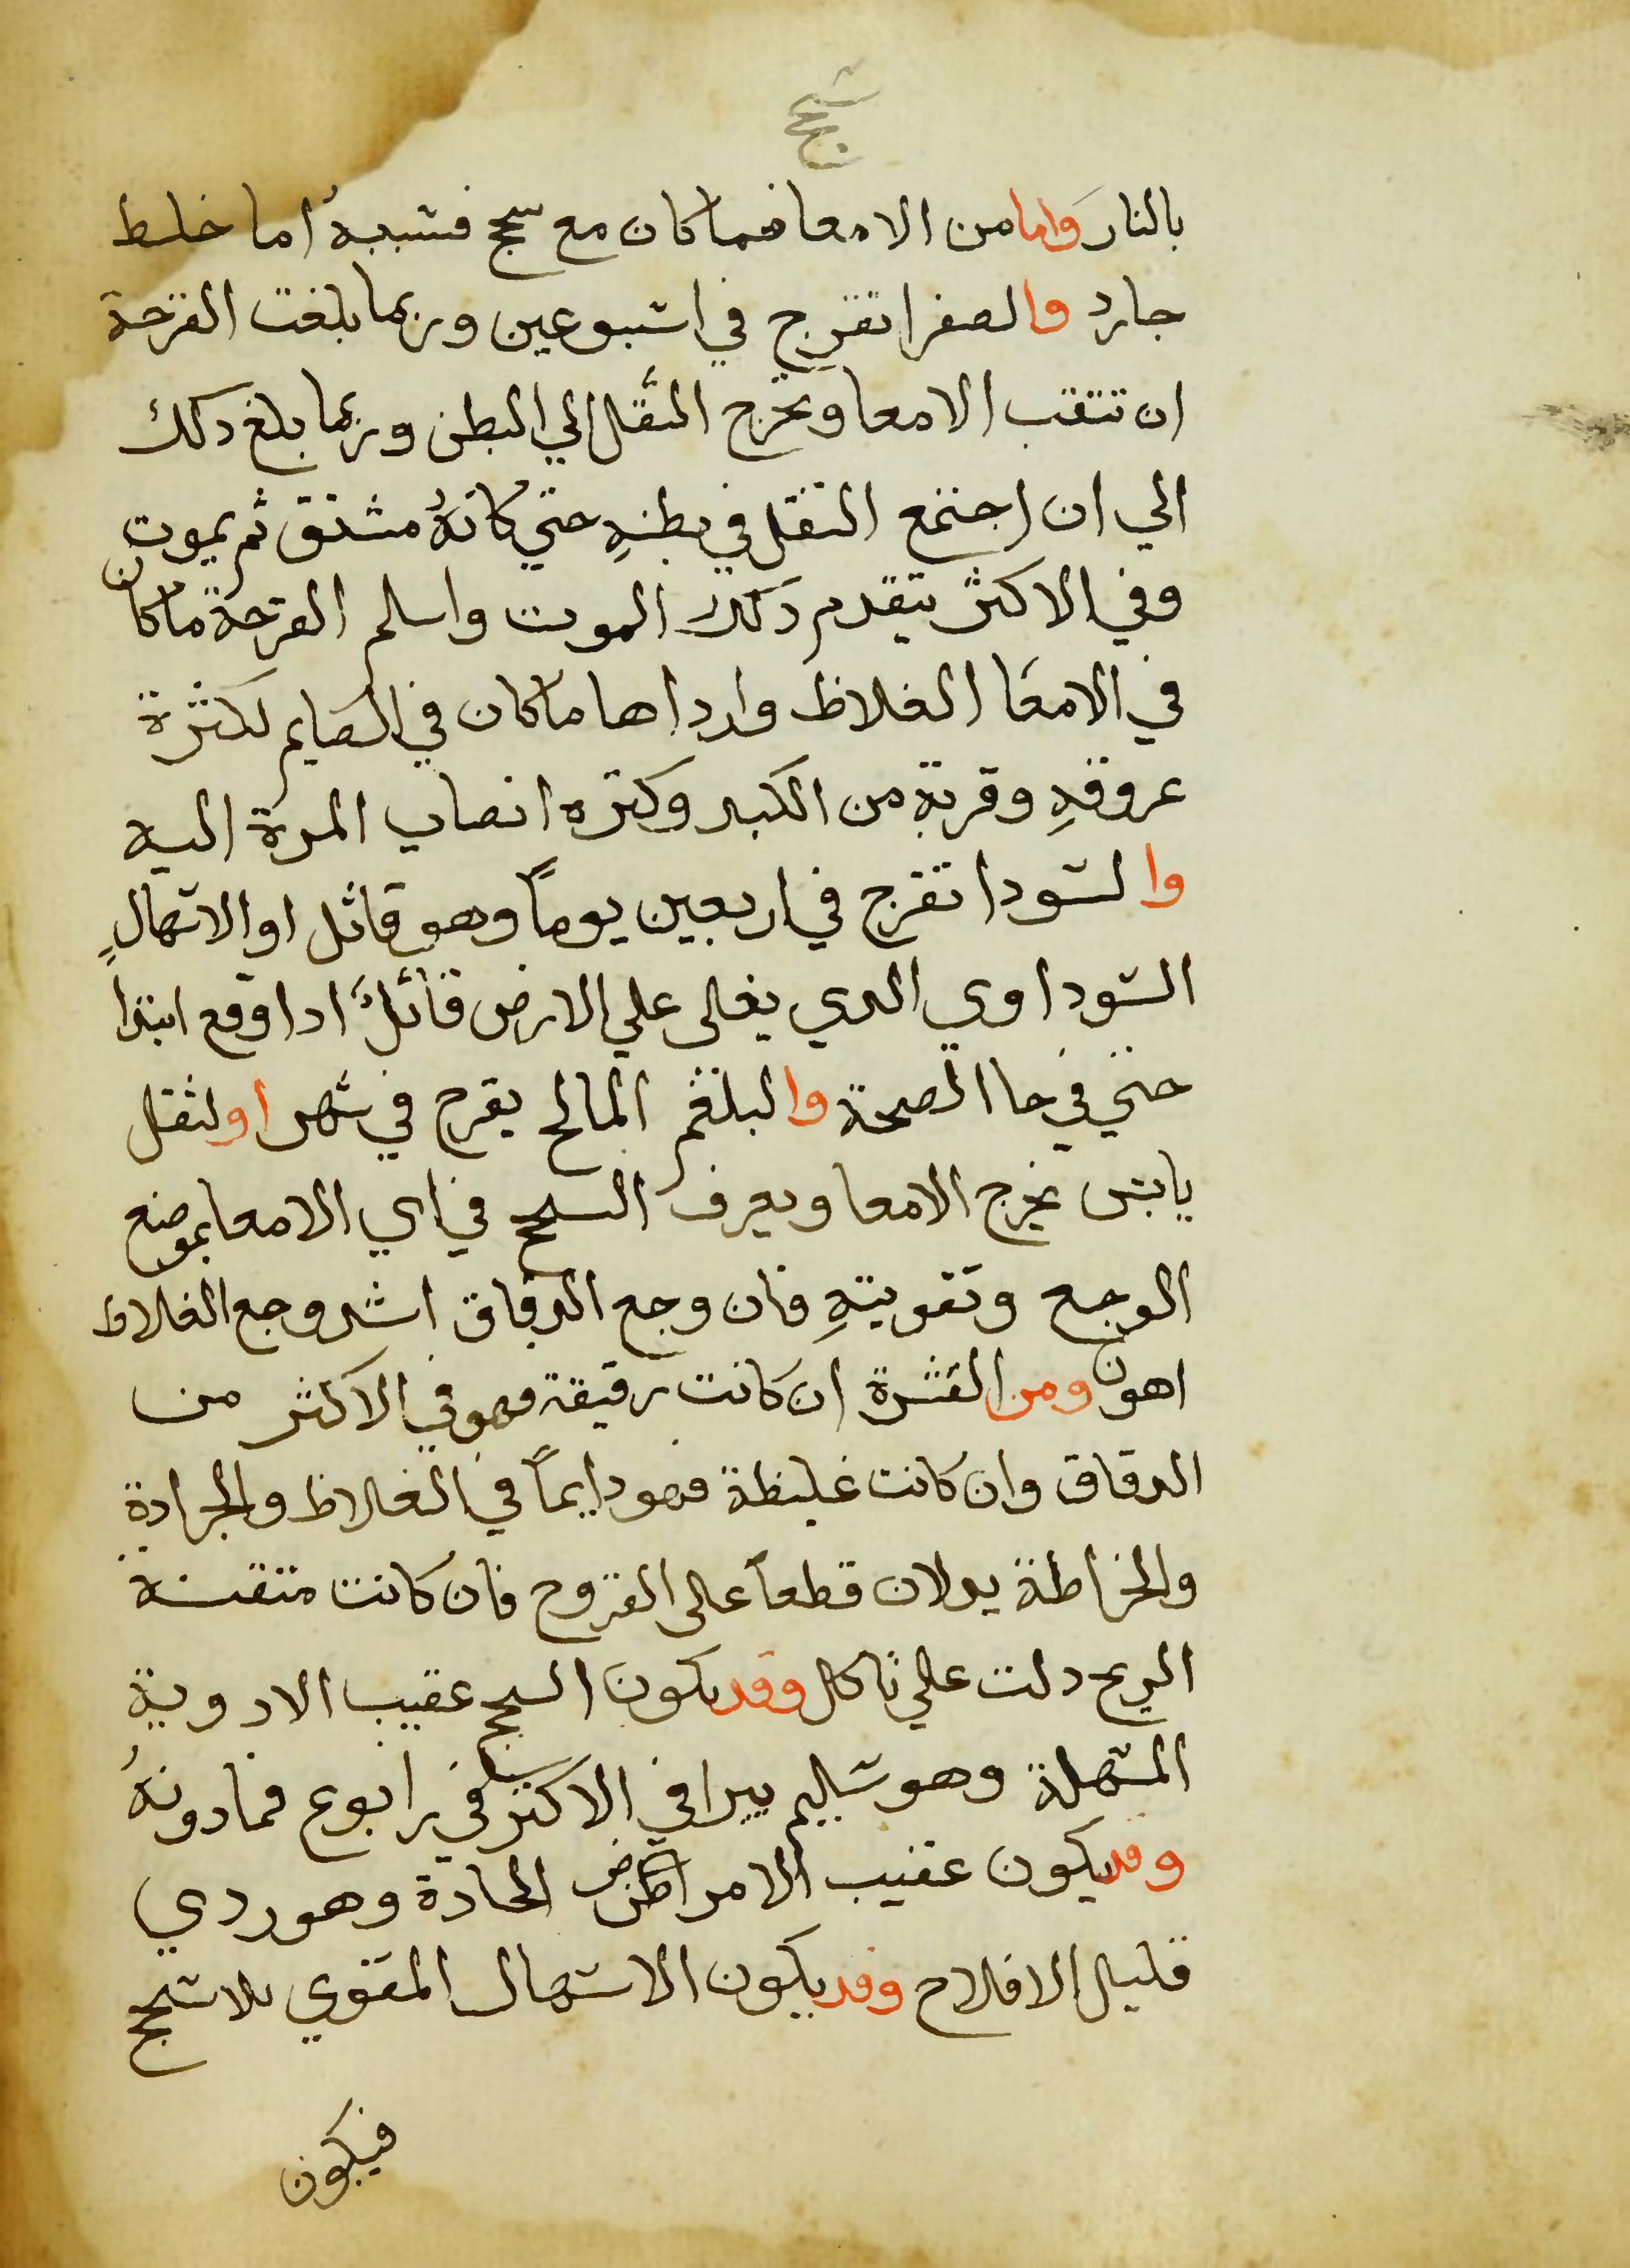 سحج
بالنار واما من الامعا فما كان مع سحج فسببهُ اما خلط
حارد والصفرا تقرح في اسبوعين وربما بلغت القرحة
ان تتقب الامعا وتخرج الثقل الي البطن وربما بلغ دلك
الي ان اجتمع الثقل في بطنهِ حتي كانهُ مستسق ثم يموت
وفي الاكثر يتقدم دلك الموت واسلم القرحة ما كان
في الامعا الغلاظ وارداها ما كان في الصايم لكثرة
عروقهِ وقربهِ من الكبد وكثره انصاب المرة اليه
والسودا تقرح في اربعين يوماً وهو قاتل او الاسهالِ
السوداوي الدي يغلى علي الارض قاتلٌ ادا وقع ابتدا
حتي في حا الصحة والبلغم المالح يقرح في شهر او لثقل
يابس يخرج الامعا ويعرف السحج في اي الامعا بموضع
الوجع وتقويتهِ فان وجع الدقاق اشد وجع الغلاظ
اهون ومن القشرة ان كانت رقيقة فهو في الاكثر من
الدقاق وان كانت غليظة فهو دايماً في الغلاظ والجرادة
والخراطة يدلان قطعاً على القروح فان كانت متقنة
الريح دلت علي تاكل وقد يكون السحج عقيب الادوية
المسهلة وهو سليم يبرا في الاكثر في رابوع فما دونهُ
وقد يكون عقيب الامراض الحادة وهو ردي
قليل الافلاح وقد يكون الاسهال المقوي بلا سحج
فيكون